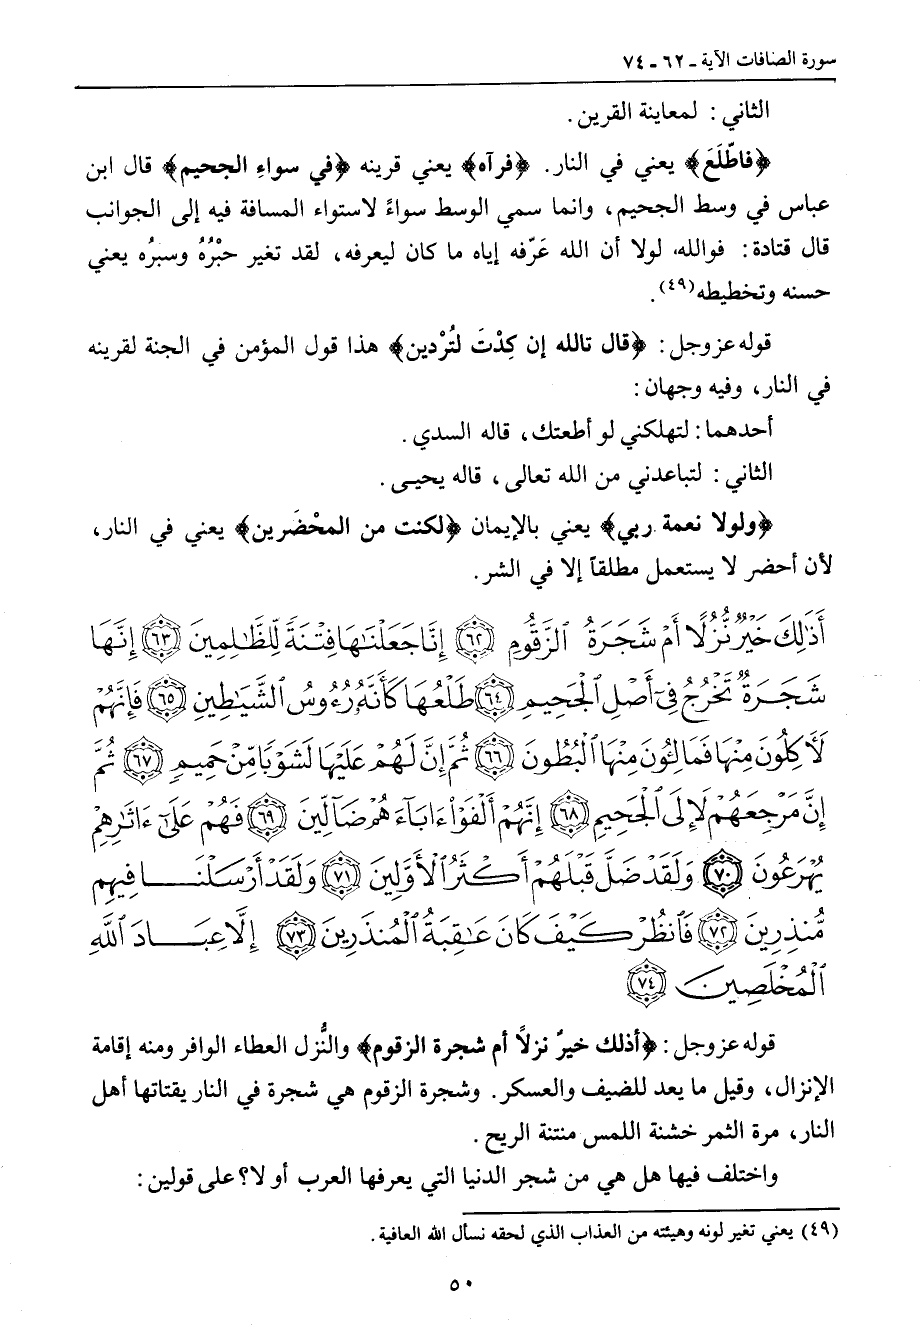 سورة الصافات الآية ـ ٦٢ ـ ٧٤
الثاني : لمعاينة القرين .
﴿فاطّلَعَ﴾ يعني في النار. ﴿فرآه﴾ يعني قرينه ﴿في سواءِ الجحيم﴾ قال ابن
عباس في وسط الجحيم، وانما سمي الوسط سواءً لاستواء المسافة فيه إلى الجوانب
قال قتادة: فوالله، لولا أن الله عَرّفه إياه ما كان ليعرفه، لقد تغير حبْرُهُ وسبرُه يعني
حسنه وتخطيطه(٤٩).
قوله عز وجل: ﴿قال تالله إن كِدْتَ لتُرْدين﴾ هذا قول المؤمن في الجنة لقرينه
في النار، وفيه وجهان:
أحدهما: لتهلكني لو أطعتك، قاله السدي .
الثاني : لتباعدني من الله تعالى، قاله يحيى .
﴿ولولا نعمة ربي﴾ يعني بالإيمان ﴿لكنت من المحْضَرين﴾ يعني في النار،
لأن أحضر لا يستعمل مطلقاً إلا في الشر.
أَذَٰلِكَ خَيْرٌ نُّزُلًا أَمْ شَجَرَةُ الزَّقُّومِ ٦٢ إِنَّا جَعَلْنَٰهَا فِتْنَةً لِّلظَّٰلِمِينَ ٦٣ إِنَّهَا
شَجَرَةٌ تَخْرُجُ فِىٓ أَصْلِ ٱلْجَحِيمِ ٦٤ طَلْعُهَا كَأَنَّهُۥ رُءُوسُ ٱلشَّيَٰطِينِ ٦٥ فَإِنَّهُمْ
لَأَكِلُونَ مِنْهَا فَمَالِـُٔونَ مِنْهَا ٱلْبُطُونَ ٦٦ ثُمَّ إِنَّ لَهُمْ عَلَيْهَا لَشَوْبًا مِّنْ حَمِيمٍ ٦٧ ثُمَّ
إِنَّ مَرْجِعَهُمْ لَإِلَى ٱلْجَحِيمِ ٦٨ إِنَّهُمْ أَلْفَوْا۟ ءَابَآءَهُمْ ضَآلِّينَ ٦٩ فَهُمْ عَلَىٰٓ ءَاثَٰرِهِمْ
يُهْرَعُونَ ٧٠ وَلَقَدْ ضَلَّ قَبْلَهُمْ أَكْثَرُ ٱلْأَوَّلِينَ ٧١ وَلَقَدْ أَرْسَلْنَا فِيهِم
مُّنذِرِينَ ٧٢ فَٱنظُرْ كَيْفَ كَانَ عَٰقِبَةُ ٱلْمُنذَرِينَ ٧٣ إِلَّا عِبَادَ ٱللَّهِ
ٱلْمُخْلَصِينَ ٧٤
قوله عز وجل: ﴿أذلك خيرٌ نزلاً أم شجرة الزقوم﴾ والنُّزل العطاء الوافر ومنه إقامة
الإنزال، وقيل ما يعد للضيف والعسكر. وشجرة الزقوم هي شجرة في النار يقتاتها أهل
النار، مرة الثمر خشنة اللمس منتنة الريح .
واختلف فيها هل هي من شجر الدنيا التي يعرفها العرب أو لا؟ على قولين :
(٤٩) يعني تغير لونه وهيئته من العذاب الذي لحقه نسأل الله العافية .
٥٠